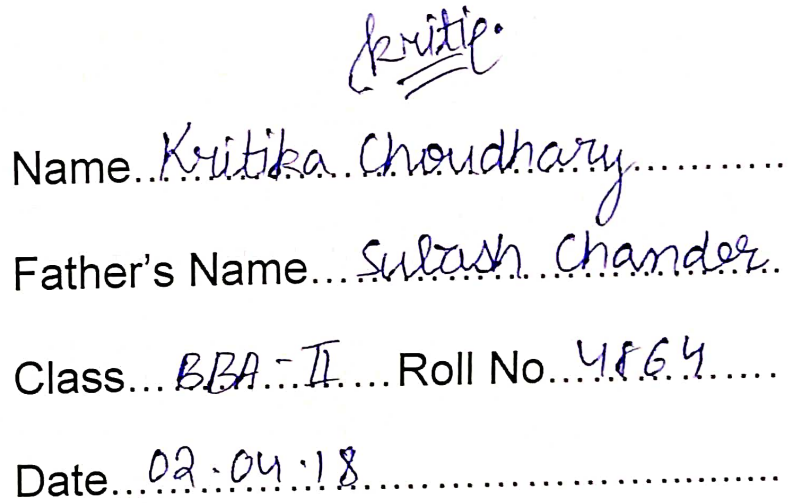 Kritie.
Name..Kritika Choudhary...........
Father's Name...Subash Chander.
Class...BBA-II....Roll No...4864.....
Date...02.04.18...........................